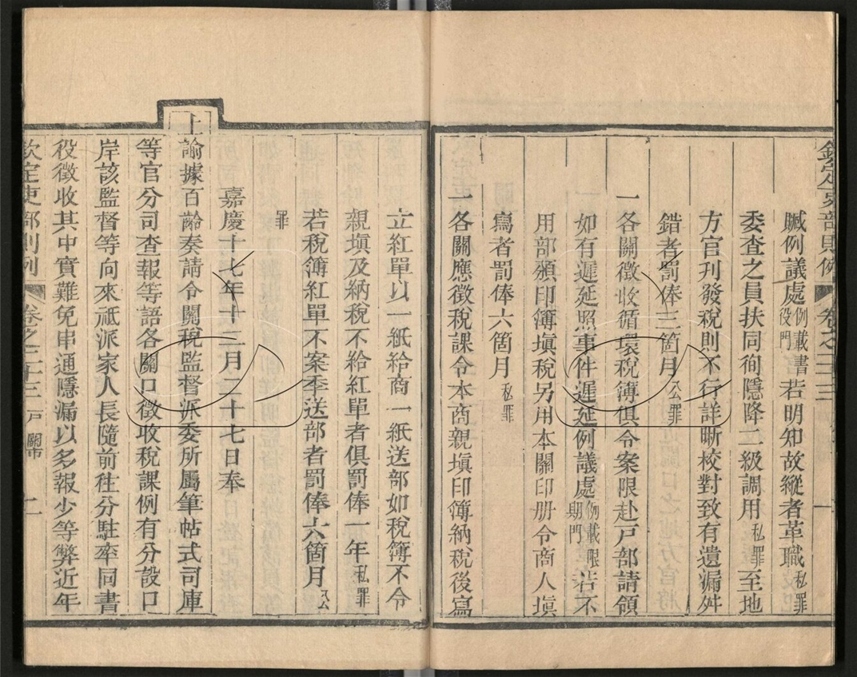 欽定吏部則例 卷之二十三 一
贓例議處例載書役門若明知故縱者革職私罪
委查之員扶同徇隱降二級調用私罪至地
方官刊發稅則不行詳晰校對致有遺漏舛
錯者罰俸三箇月公罪
一各關徵收循環稅簿俱令案限赴戶部請領
如有遲延照事件遲延例議處例載限期門若不
用部頒印簿塡稅另用本關印册令商人塡
寫者罰俸六箇月私罪
一各關應徵稅課令本商親塡印簿納稅後寫
立紅單以一紙給商一紙送部如稅簿不令
親塡及納稅不給紅單者俱罰俸一年私罪
若稅簿紅單不案季送部者罰俸六箇月公
罪
嘉慶十七年十二月二十七日奉
上諭據百齡奏請令關稅監督派委所屬筆帖式司庫
等官分司查報等語各關口徵收稅課例有分設口
岸該監督等向來祗派家人長隨前往分駐率同書
役徵收其中實難免串通隱漏以多報少等弊近年
欽定吏部則例 卷之二十三 戶 關市 二